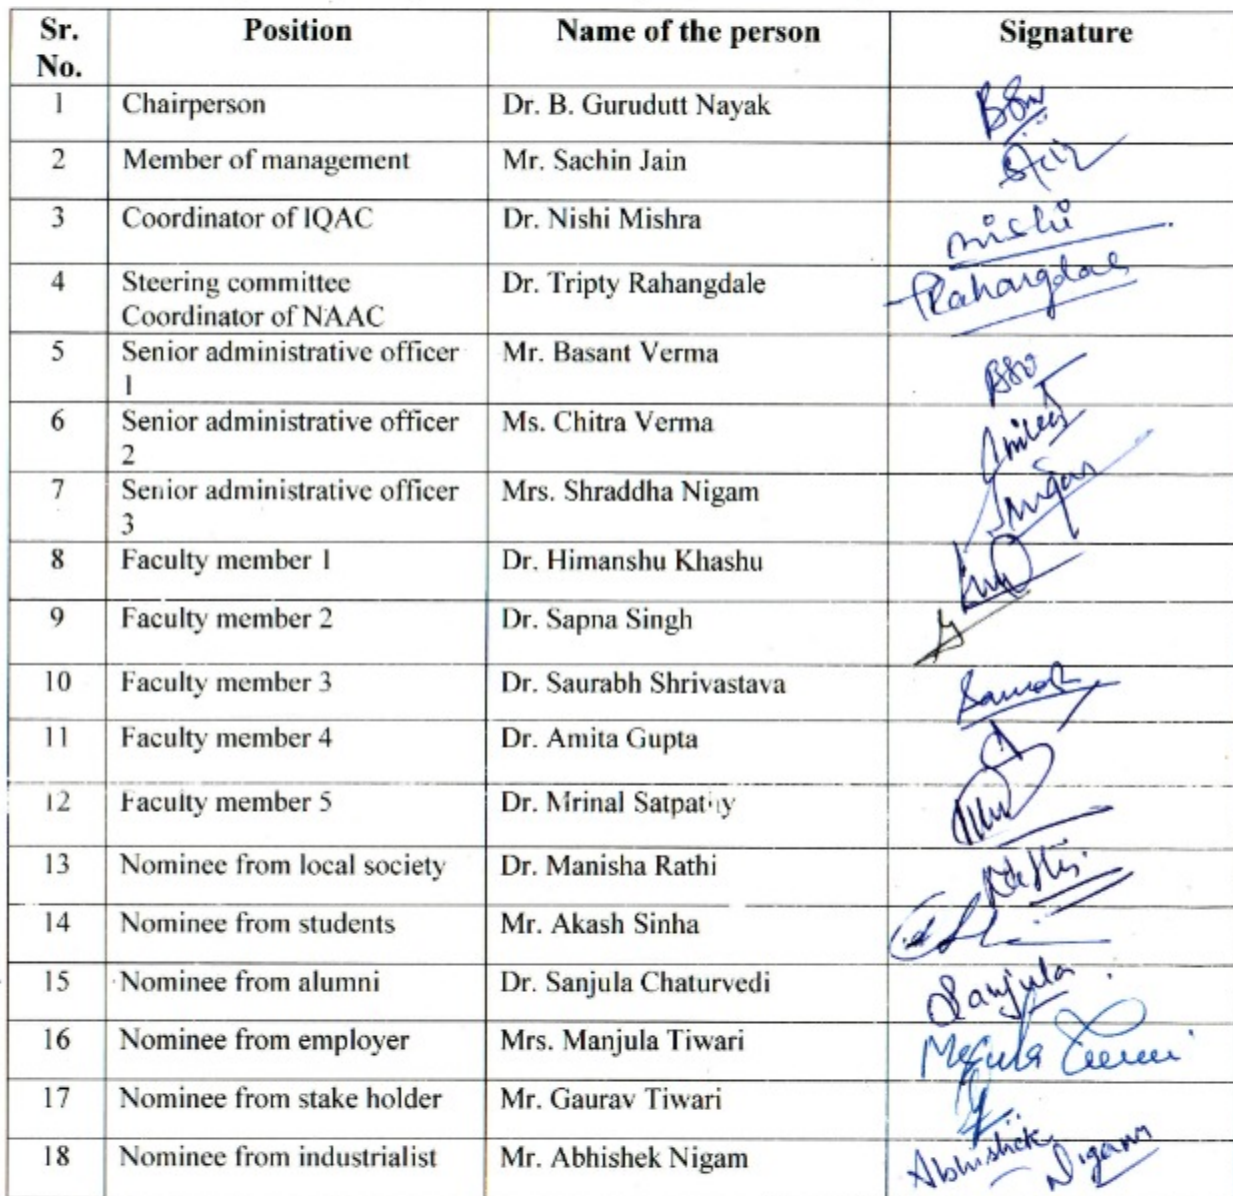 Sr. No. Position Name of the person Signature
1 Chairperson Dr. B. Gurudutt Nayak
2 Member of management Mr. Sachin Jain
3 Coordinator of IQAC Dr. Nishi Mishra Nishi
4 Steering committee Dr. Tripty Rahangdale TRahangdale
Coordinator of NAAC
5 Senior administrative officer Mr. Basant Verma
1
6 Senior administrative officer Ms. Chitra Verma
2
7 Senior administrative officer Mrs. Shraddha Nigam Snigam
3
8 Faculty member 1 Dr. Himanshu Khashu
9 Faculty member 2 Dr. Sapna Singh
10 Faculty member 3 Dr. Saurabh Shrivastava
11 Faculty member 4 Dr. Amita Gupta
12 Faculty member 5 Dr. Mrinal Satpathy
13 Nominee from local society Dr. Manisha Rathi
14 Nominee from students Mr. Akash Sinha
15 Nominee from alumni Dr. Sanjula Chaturvedi Sanjula
16 Nominee from employer Mrs. Manjula Tiwari
17 Nominee from stake holder Mr. Gaurav Tiwari
18 Nominee from industrialist Mr. Abhishek Nigam Abhishek Nigam